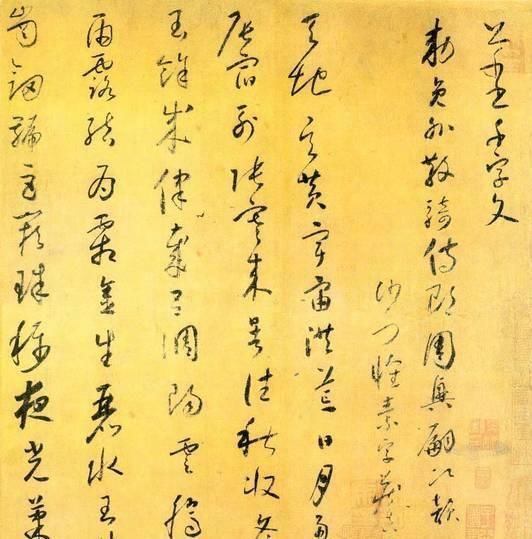 草書千字文
敕員外散騎侍郎周興嗣次韻
沙門懷素字藏真
天地玄黃宇宙洪荒日月盈
辰宿列張寒來暑往秋收冬
閏餘成律歲呂調陽雲騰
雨露結為霜金生麗水玉
崗劍號巨闕珠稱夜光菓